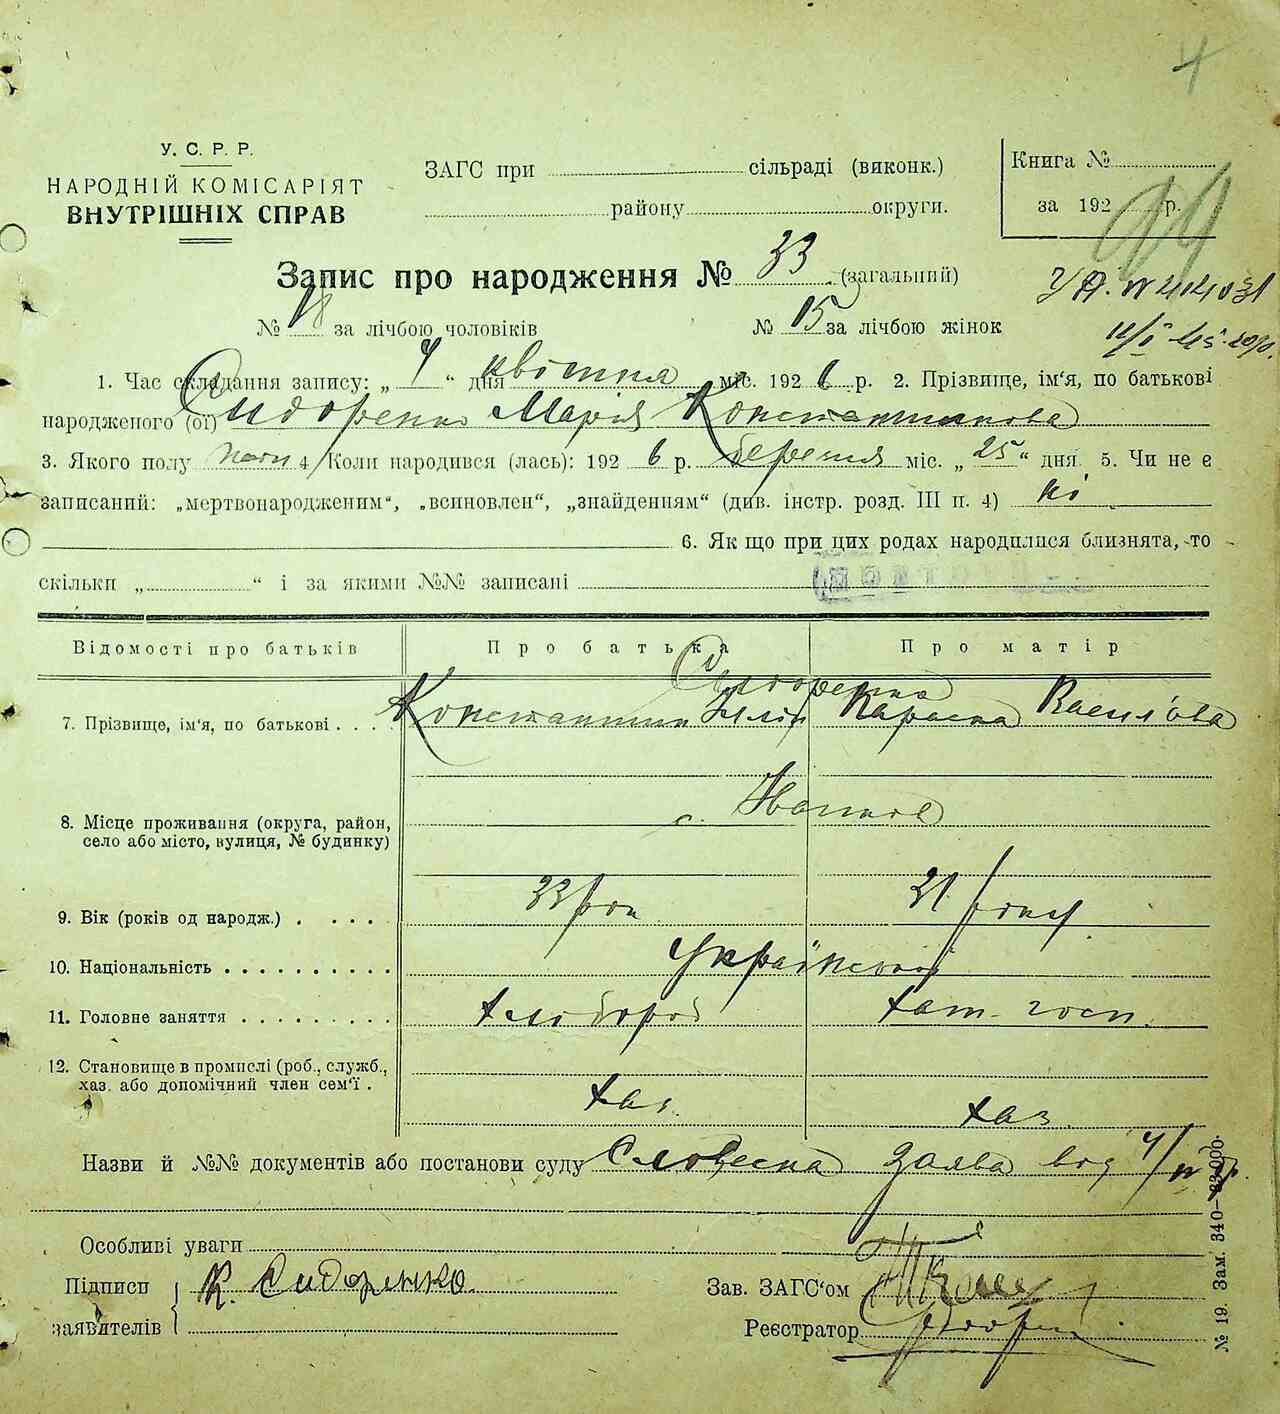 4
У. С. Р. Р.
НАРОДНІЙ КОМІСАРІЯТ
ВНУТРІШНІХ СПРАВ
ЗАГС при сільраді (виконк.)
району округи.
Книга №
за 192 р.
Запис про народження № 33 (загальний)
№ 18 за лічбою чоловіків № 15 за лічбою жінок
1. Час складання запису: „ 4 “ дня квітня міс. 192 6 р. 2. Прізвище, ім'я, по батькові
народженого (ої) Сидоренко Марія Константинова
3. Якого полу 4 Коли народився (лась): 192 6 р. березня міс. „ 25 “ дня. 5. Чи не є
записаний: „мертвонародженим“, „всиновлен“, „знайденням“ (див. інстр. розд. III п. 4) ні
6. Як що при цих родах народилися близнята, то
скільки „ “ і за якими №№ записані
Відомості про батьків Про батька Про матір
Сидоренко
7. Прізвище, ім'я, по батькові . . . . Константин Параска Василова
с.
8. Місце проживання (округа, район,
село або місто, вулиця, № будинку)
9. Вік (років од народж.) . . . . . 33 рок 31 року
10. Національність . . . . . . . . . . Українській
11. Головне заняття . . . . . . . . . хлібороб хат. госп.
12. Становище в промислі (роб., служб.,
хаз. або допомічний член сем'ї .
хаз. хаз.
Назви й №№ документів або постанови суду Словесна заява від 4/IV
Особливі уваги
Підписи заявителів К. Сидоренко
Зав. ЗАГС'ом
Реєстратор
№ 19. Зам. 340—33.000.